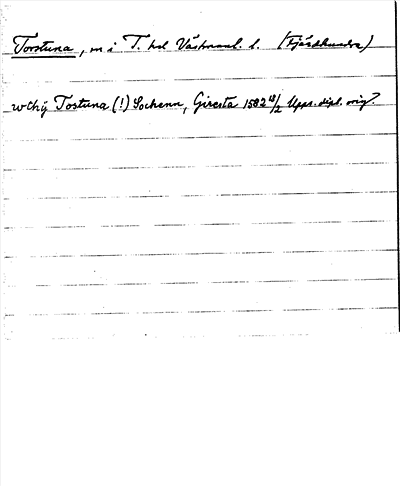 Torstuna, sn i T. hd Västmanl. l. (Fjärdhundra)
wthij Tostuna (!) Sochenn, Giresta 1582 18/2 Upps. dipl. orig.